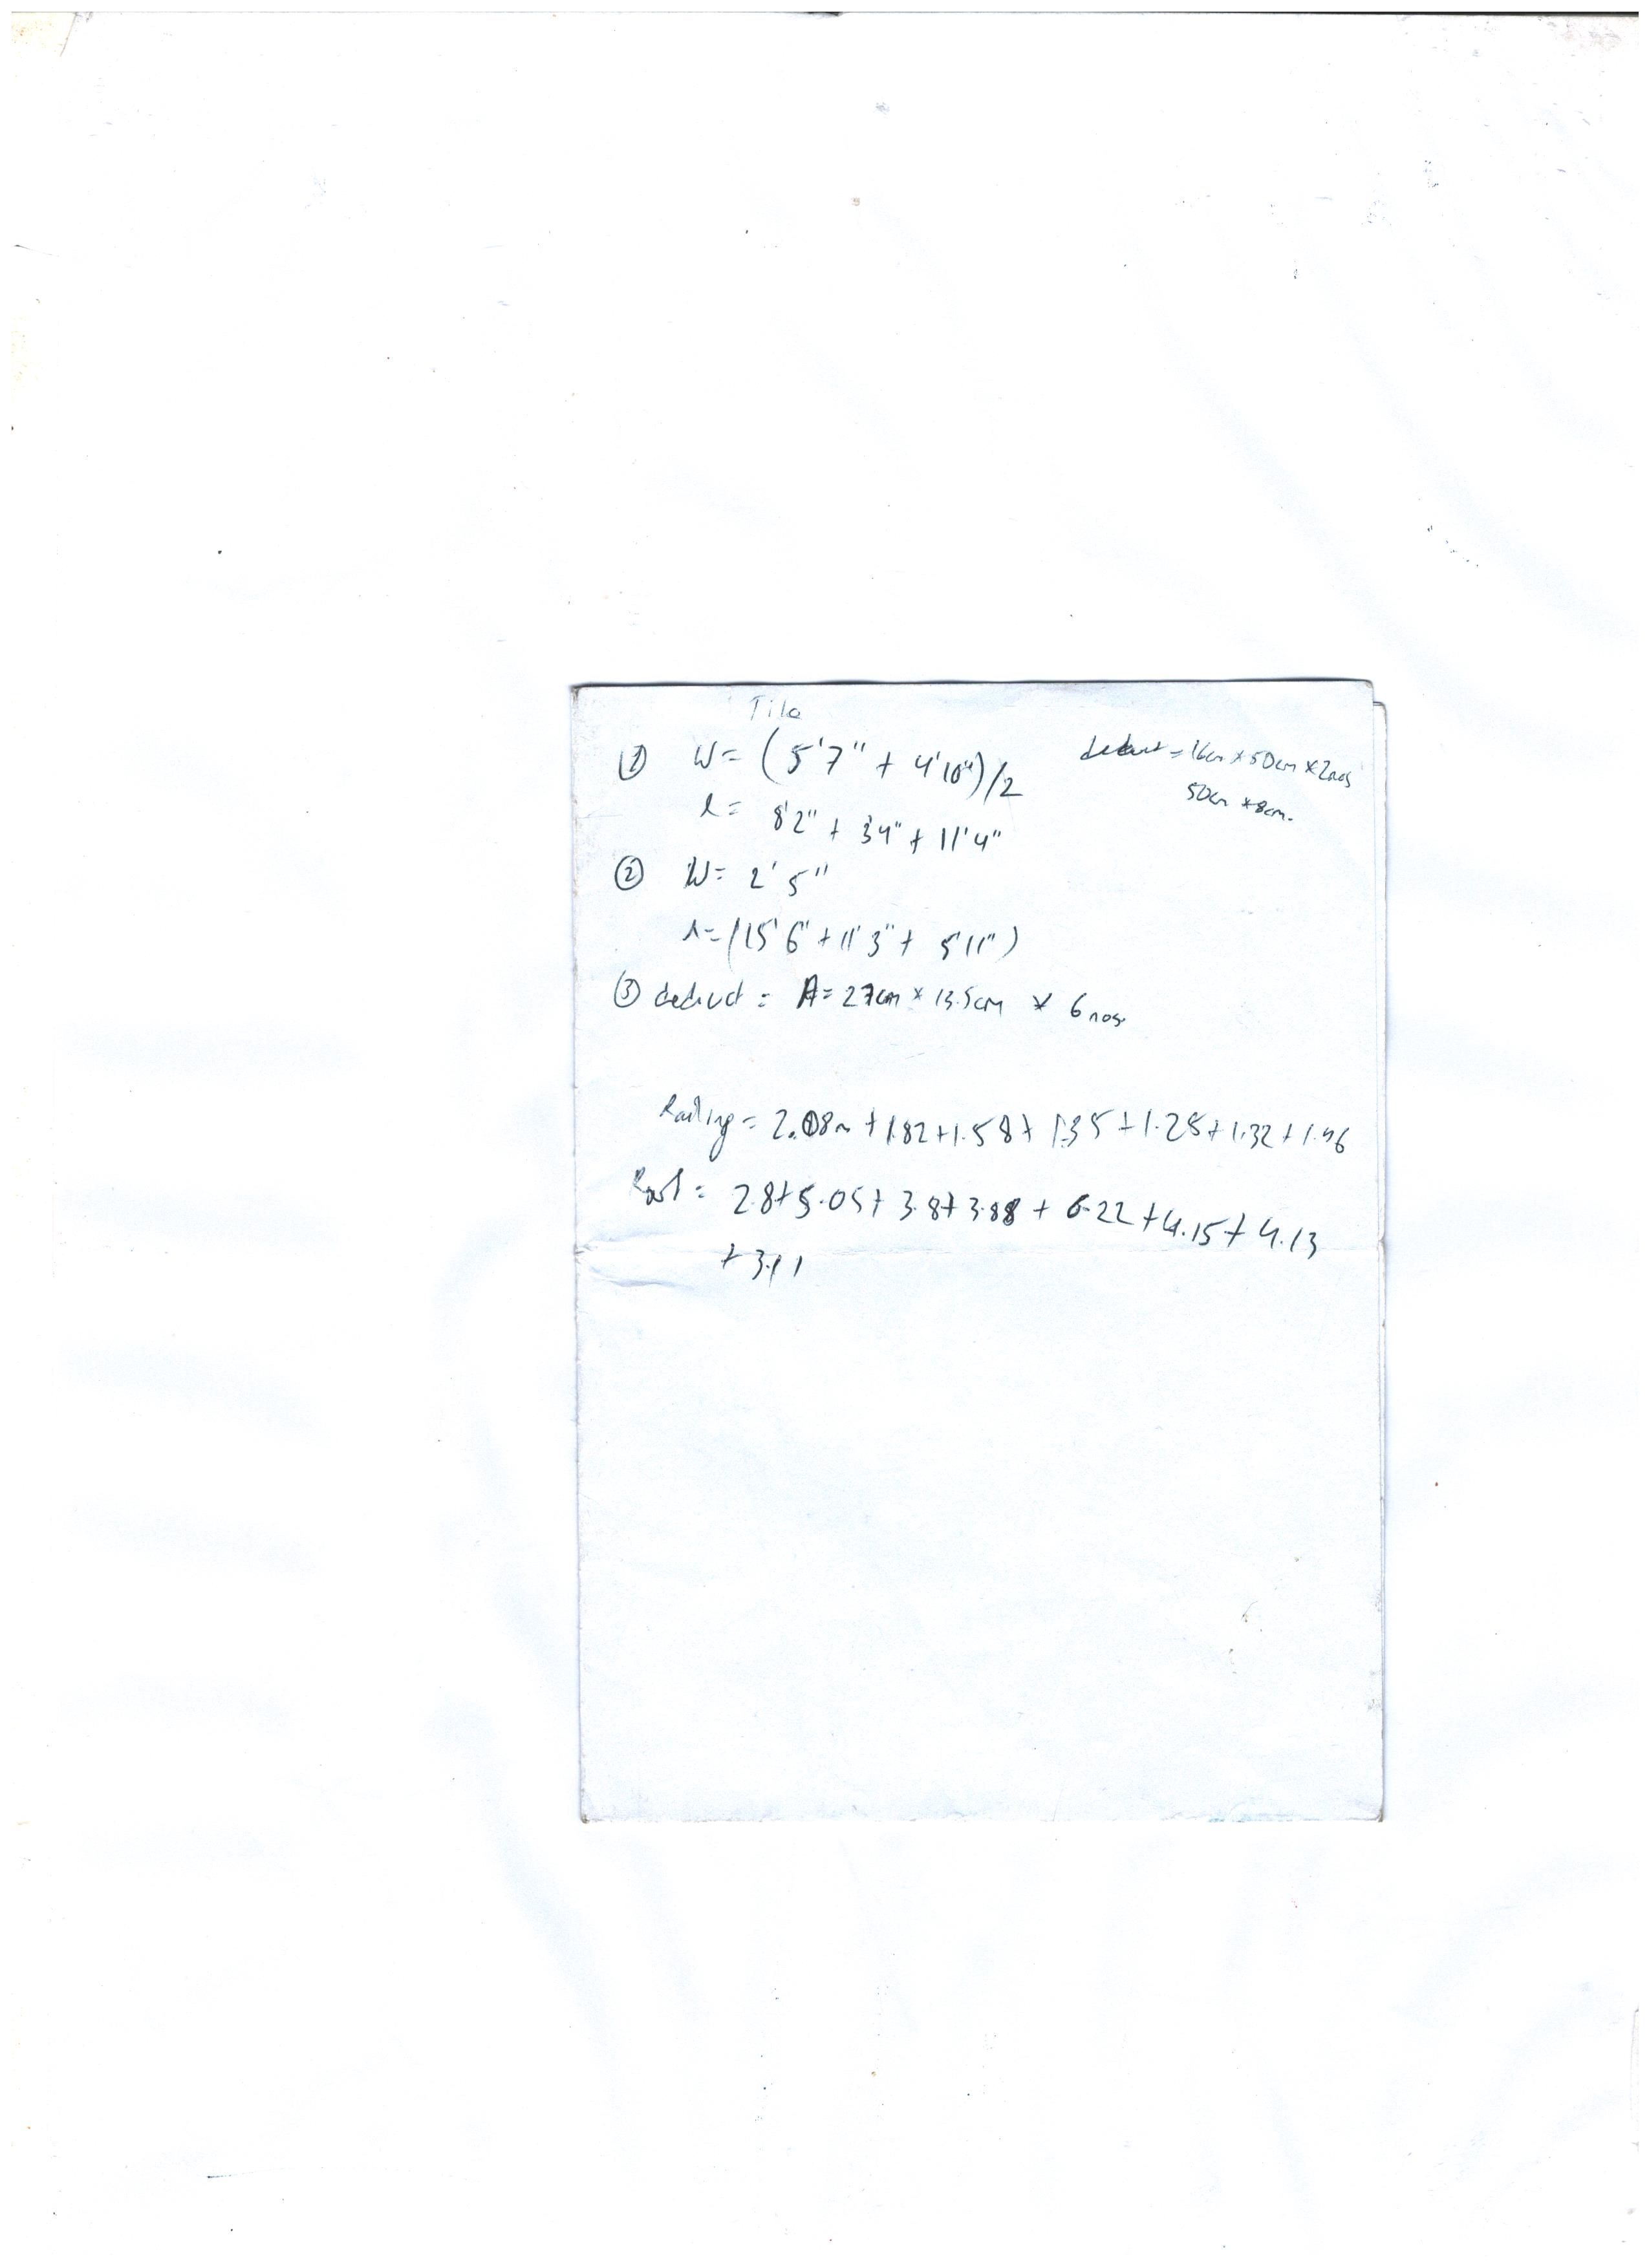 Tile
① W = (5'7" + 4'10")/2
deduct = 16cm × 50cm × 2nos
50cm × 8cm.
l = 8'2" + 3'4" + 11'4"
② W = 2'5"
l = (15'6" + 11'3" + 5'11")
③ deduct = A = 27cm × 13.5cm × 6nos.
Railing = 2.08m + 1.82 + 1.58 + 1.35 + 1.25 + 1.32 + 1.46
= 2.8 + 5.05 + 3.8 + 3.88 + 6.22 + 4.15 + 4.13
+ 3.11